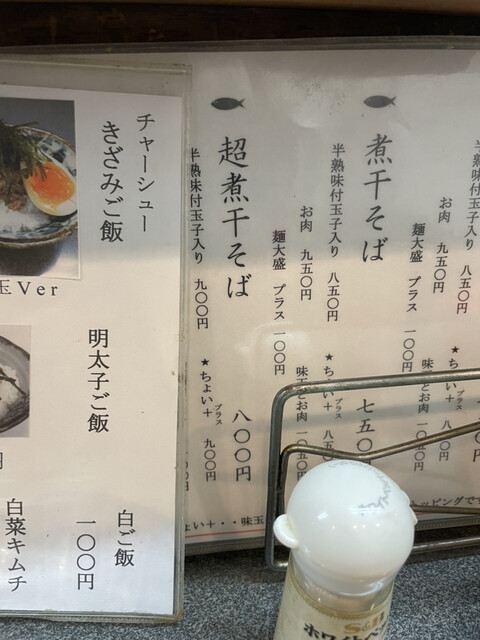 チャーシュー
きざみご飯
玉Ver
明太子ご飯
白ご飯
一〇〇円
白菜キムチ
円
煮干そば
七五〇
半熟味付玉子入り 八五〇円
お肉 九五〇円
麺大盛 プラス 一〇〇円
★ちょい+ プラス 八五
味玉とお肉 一〇五〇円
超煮干そば
八〇〇円
半熟味付玉子入り 九〇〇円
★ちょい+ プラス 九〇〇円
半熟味付玉子入り 八五〇円
お肉 九五〇円
麺大盛 プラス 一〇〇円
★ちょい+ プラス
ょい+・・味玉
トッピングです
S&B
ホワイト